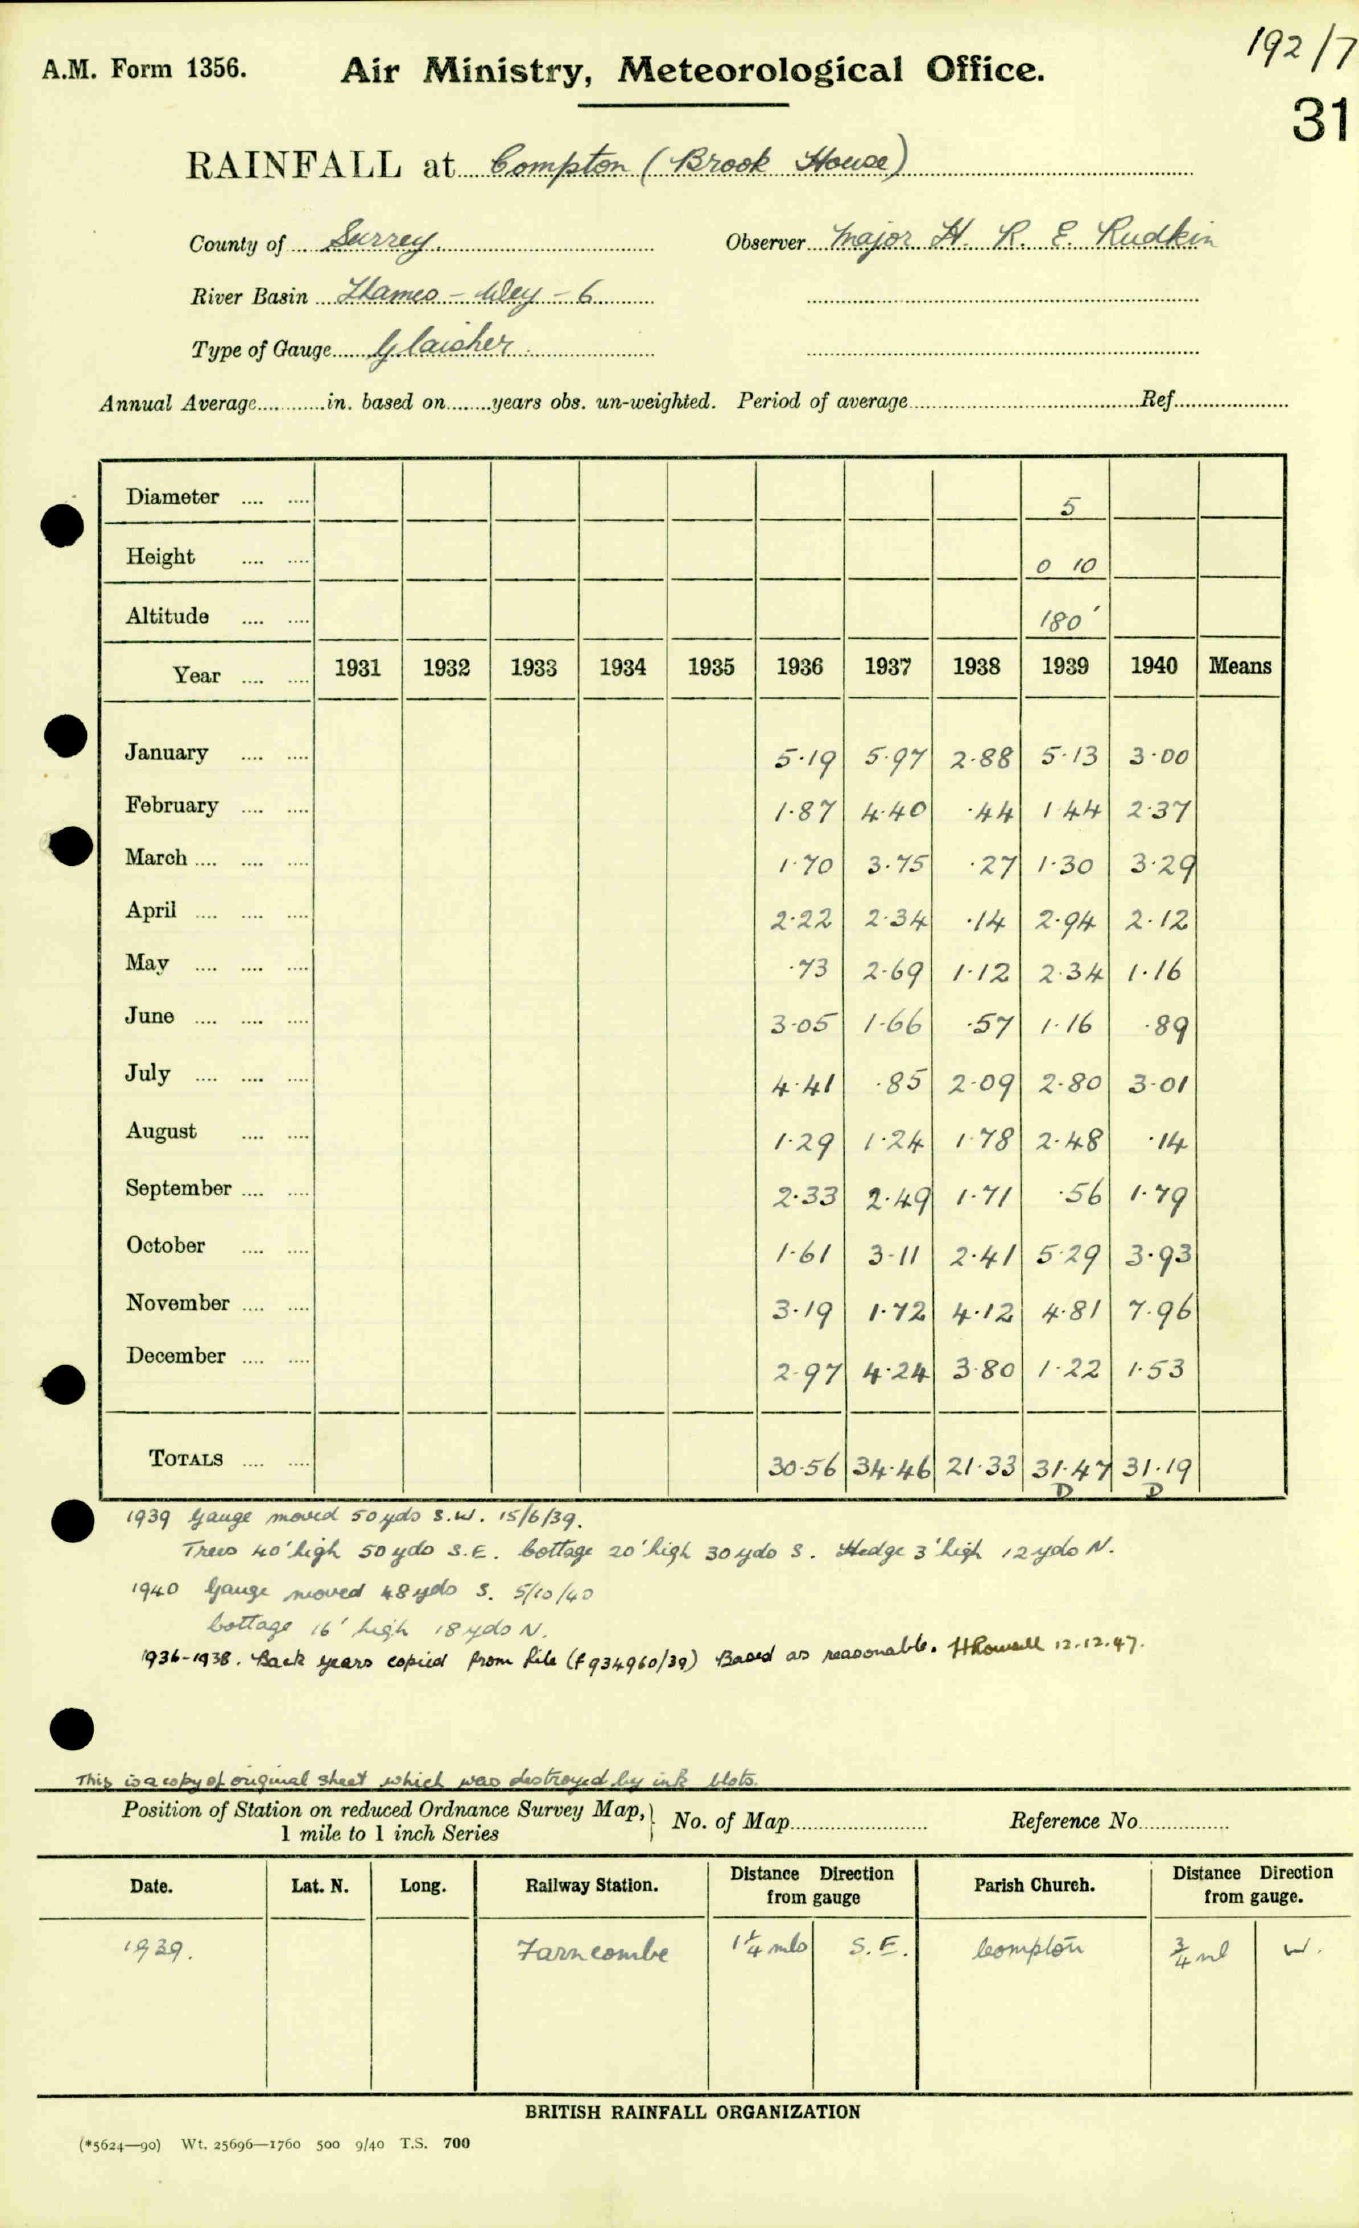 192/7
A.M. Form 1356. Air Ministry, Meteorological Office.
31
RAINFALL at Compton (Brook House)
County of Surrey. Observer Major H. R. E. Rudkin
River Basin Thames - Wey - 6
Type of Gauge Glaisher
Annual Average............in. based on........years obs. un-weighted. Period of average........Ref........
Diameter .... .... 5
Height .... .... 0 10
Altitude .... .... 180'
Year .... .... 1931 1932 1933 1934 1935 1936 1937 1938 1939 1940 Means
January .... .... 5·19 5·97 2·88 5·13 3·00
February .... .... 1·87 4·40 ·44 1 44 2·37
March .... .... .... 1·70 3·75 ·27 1·30 3·29
April .... .... .... 2·22 2·34 ·14 2·94 2·12
May .... .... .... ·73 2·69 1·12 2·34 1·16
June .... .... .... 3·05 1·66 ·57 1·16 ·89
July .... .... .... 4·41 ·85 2·09 2·80 3·01
August .... .... 1·29 1·24 1·78 2·48 ·14
September .... .... 2·33 2·49 1·71 ·56 1·79
October .... .... 1·61 3·11 2·41 5·29 3·93
November .... .... 3·19 1·72 4·12 4·81 7·96
December .... .... 2·97 4·24 3·80 1·22 1·53
TOTALS .... .... 30·56 34·46 21·33 31·47 31·19
D D
1939 Gauge moved 50 yds S.W. 15/6/39.
Trees 40' high 50 yds S.E. Cottage 20' high 30 yds S. Hedge 3' high 12 yds N.
1940 Gauge moved 48 yds S. 5/10/40
Cottage 16' high 18 yds N.
1936-1938. Back years copied from file (f 934960/39) Based as reasonable. 12.12.47.
This is a copy of original sheet which was destroyed by ink blots.
Position of Station on reduced Ordnance Survey Map, } No. of Map........ Reference No........
1 mile to 1 inch Series
Date. Lat. N. Long. Railway Station. Distance Direction from gauge Parish Church. Distance Direction from gauge.
1939. Farncombe 1¼ mls S.E. Compton ¾ ml W.
BRITISH RAINFALL ORGANIZATION
(*5624—90) Wt. 25696—1760 500 9/40 T.S. 700